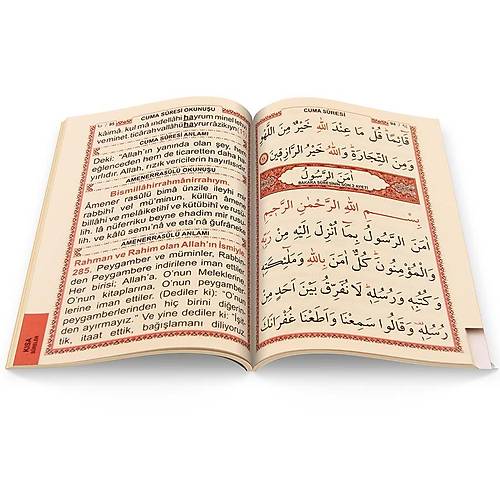 CUMA SÛRESİ OKUNUŞU
kâimâ. kul mâ ındellâhi hayrum minel lehvi
ve minet ticârah vallâhü hayrur râzikıyn(11)
CUMA SÛRESİ ANLAMI
Deki: "Allah'ın yanında olan şey, hem
eğlenceden hem de ticaretten daha ha-
yırlıdır. Allah, rızık vericilerin hayırlısıdır."
AMENERRASÛLÜ OKUNUŞU
Bismillâhirrahmânirrahıym.
Âmener rasûlü bimâ ünzile ileyhi mir
rabbihî vel mü'minun. küllün âmene
billâhi ve melâiketihî ve kütübihî ve rusü-
lih. lâ nüferriku beyne ehadim mir rusü-
lih. ve kâlû semi'nâ ve eta'nâ ğufrâneke
AMENERRASÛLÜ ANLAMI
Rahman ve Rahim olan Allah'ın İsmiyle.
285. Peygamber ve müminler, Rabbi
den Peygambere indirilene iman ettiler.
Her birisi: Allah'a. O'nun Meleklerine.
O'nun kitaplarına. O'nun peygamber-
lerine iman ettiler. (Dediler ki): "O'nun
peygamberlerinden hiç birini diğerin-
den ayırmayız." Ve yine dediler ki: "İşit-
tik, itaat ettik, bağışlamanı diliyoruz
KISA
CUMA SÛRESİ
قَٓائِمًا قُلْ مَا عِنْدَ اللّٰهِ خَيْرٌ مِنَ اللَّهْوِ
وَمِنَ التِّجَارَةِ وَاللّٰهُ خَيْرُ الرَّازِقِينَ ۝١١
اٰمَنَ الرَّسُولُ
BAKARA SÛRESİNİN SON 2 AYETİ
بِسْمِ اللّٰهِ الرَّحْمٰنِ الرَّحِيمِ
اٰمَنَ الرَّسُولُ بِمَٓا اُنْزِلَ اِلَيْهِ مِنْ رَبِّهِ
وَالْمُؤْمِنُونَ كُلٌّ اٰمَنَ بِاللّٰهِ وَمَلٰٓئِكَتِهِ
وَكُتُبِهِ وَرُسُلِهِ لَا نُفَرِّقُ بَيْنَ اَحَدٍ مِنْ
رُسُلِهِ وَقَالُوا سَمِعْنَا وَاَطَعْنَا غُفْرَانَكَ